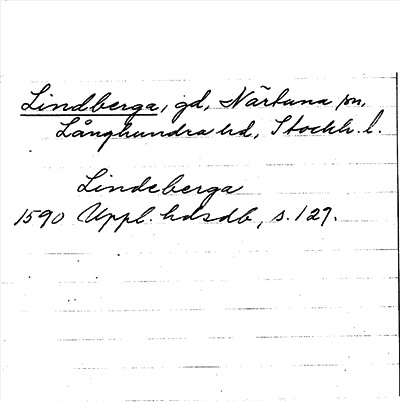 Lindberga, gd, Närtuna sn,
Långhundra hd, Stockh. l.
Lindeberga
1590 Uppl. hdsdb, s. 127.